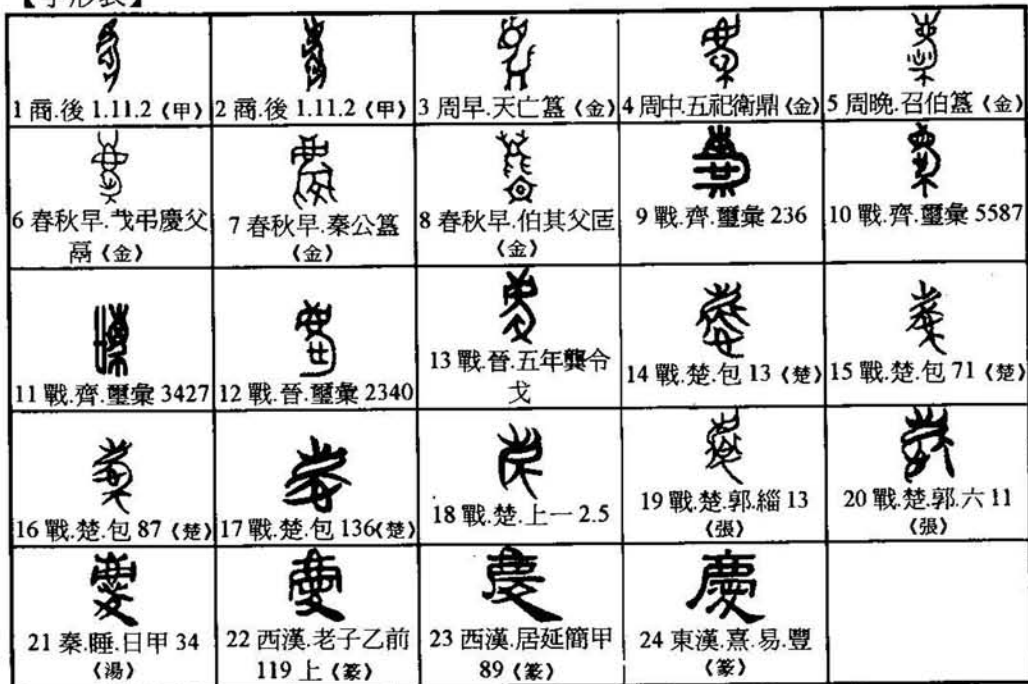 【字形表】
1 商.後 1.11.2《甲》 2 商.後 1.11.2《甲》 3 周早.天亡簋《金》 4 周中.五祀衛鼎《金》 5 周晚.召伯簋《金》
6 春秋早.戈弔慶父鬲《金》 7 春秋早.秦公簋《金》 8 春秋早.伯其父匠《金》 9 戰.齊.璽彙 236 10 戰.齊.璽彙 5587
11 戰.齊.璽彙 3427 12 戰.晉.璽彙 2340 13 戰.晉.五年龏令戈 14 戰.楚.包 13《楚》 15 戰.楚.包 71《楚》
16 戰.楚.包 87《楚》 17 戰.楚.包 136《楚》 18 戰.楚.上一 2.5 19 戰.楚.郭.緇 13《張》 20 戰.楚.郭.六 11《張》
21 秦.睡.日甲 34《湯》 22 西漢.老子乙前 119 上《篆》 23 西漢.居延簡甲 89《篆》 24 東漢.熹.易.豐《篆》